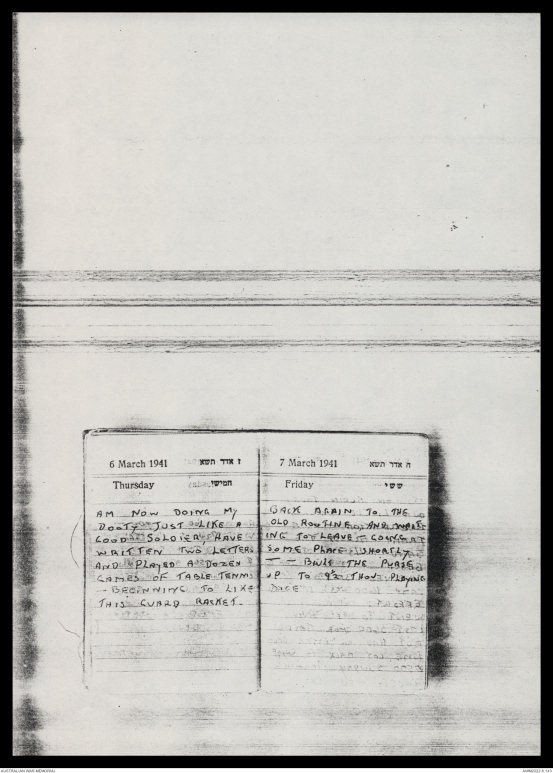 6 March 1941 ז אדר תשא
Thursday חמישי
AM NOW DOING MY
DOOTY JUST LIKE A
GOOD SOLDIER, HAVE
WRITTEN TWO LETTERS
AND PLAYED A DOZEN
GAMES OF TABLE-TENNIS
- BEGINNING TO LIKE
THIS GUARD RACKET.
7 March 1941 ח אדר תשא
Friday ששי
BACK AGAIN TO THE
OLD ROUTINE, AND WAIT
ING TO LEAVE - GOING
SOME PLACE SHORTLY
- - BUILT THE PURSE
UP TO THOU PLAYING
DICE
AUSTRALIAN WAR MEMORIAL